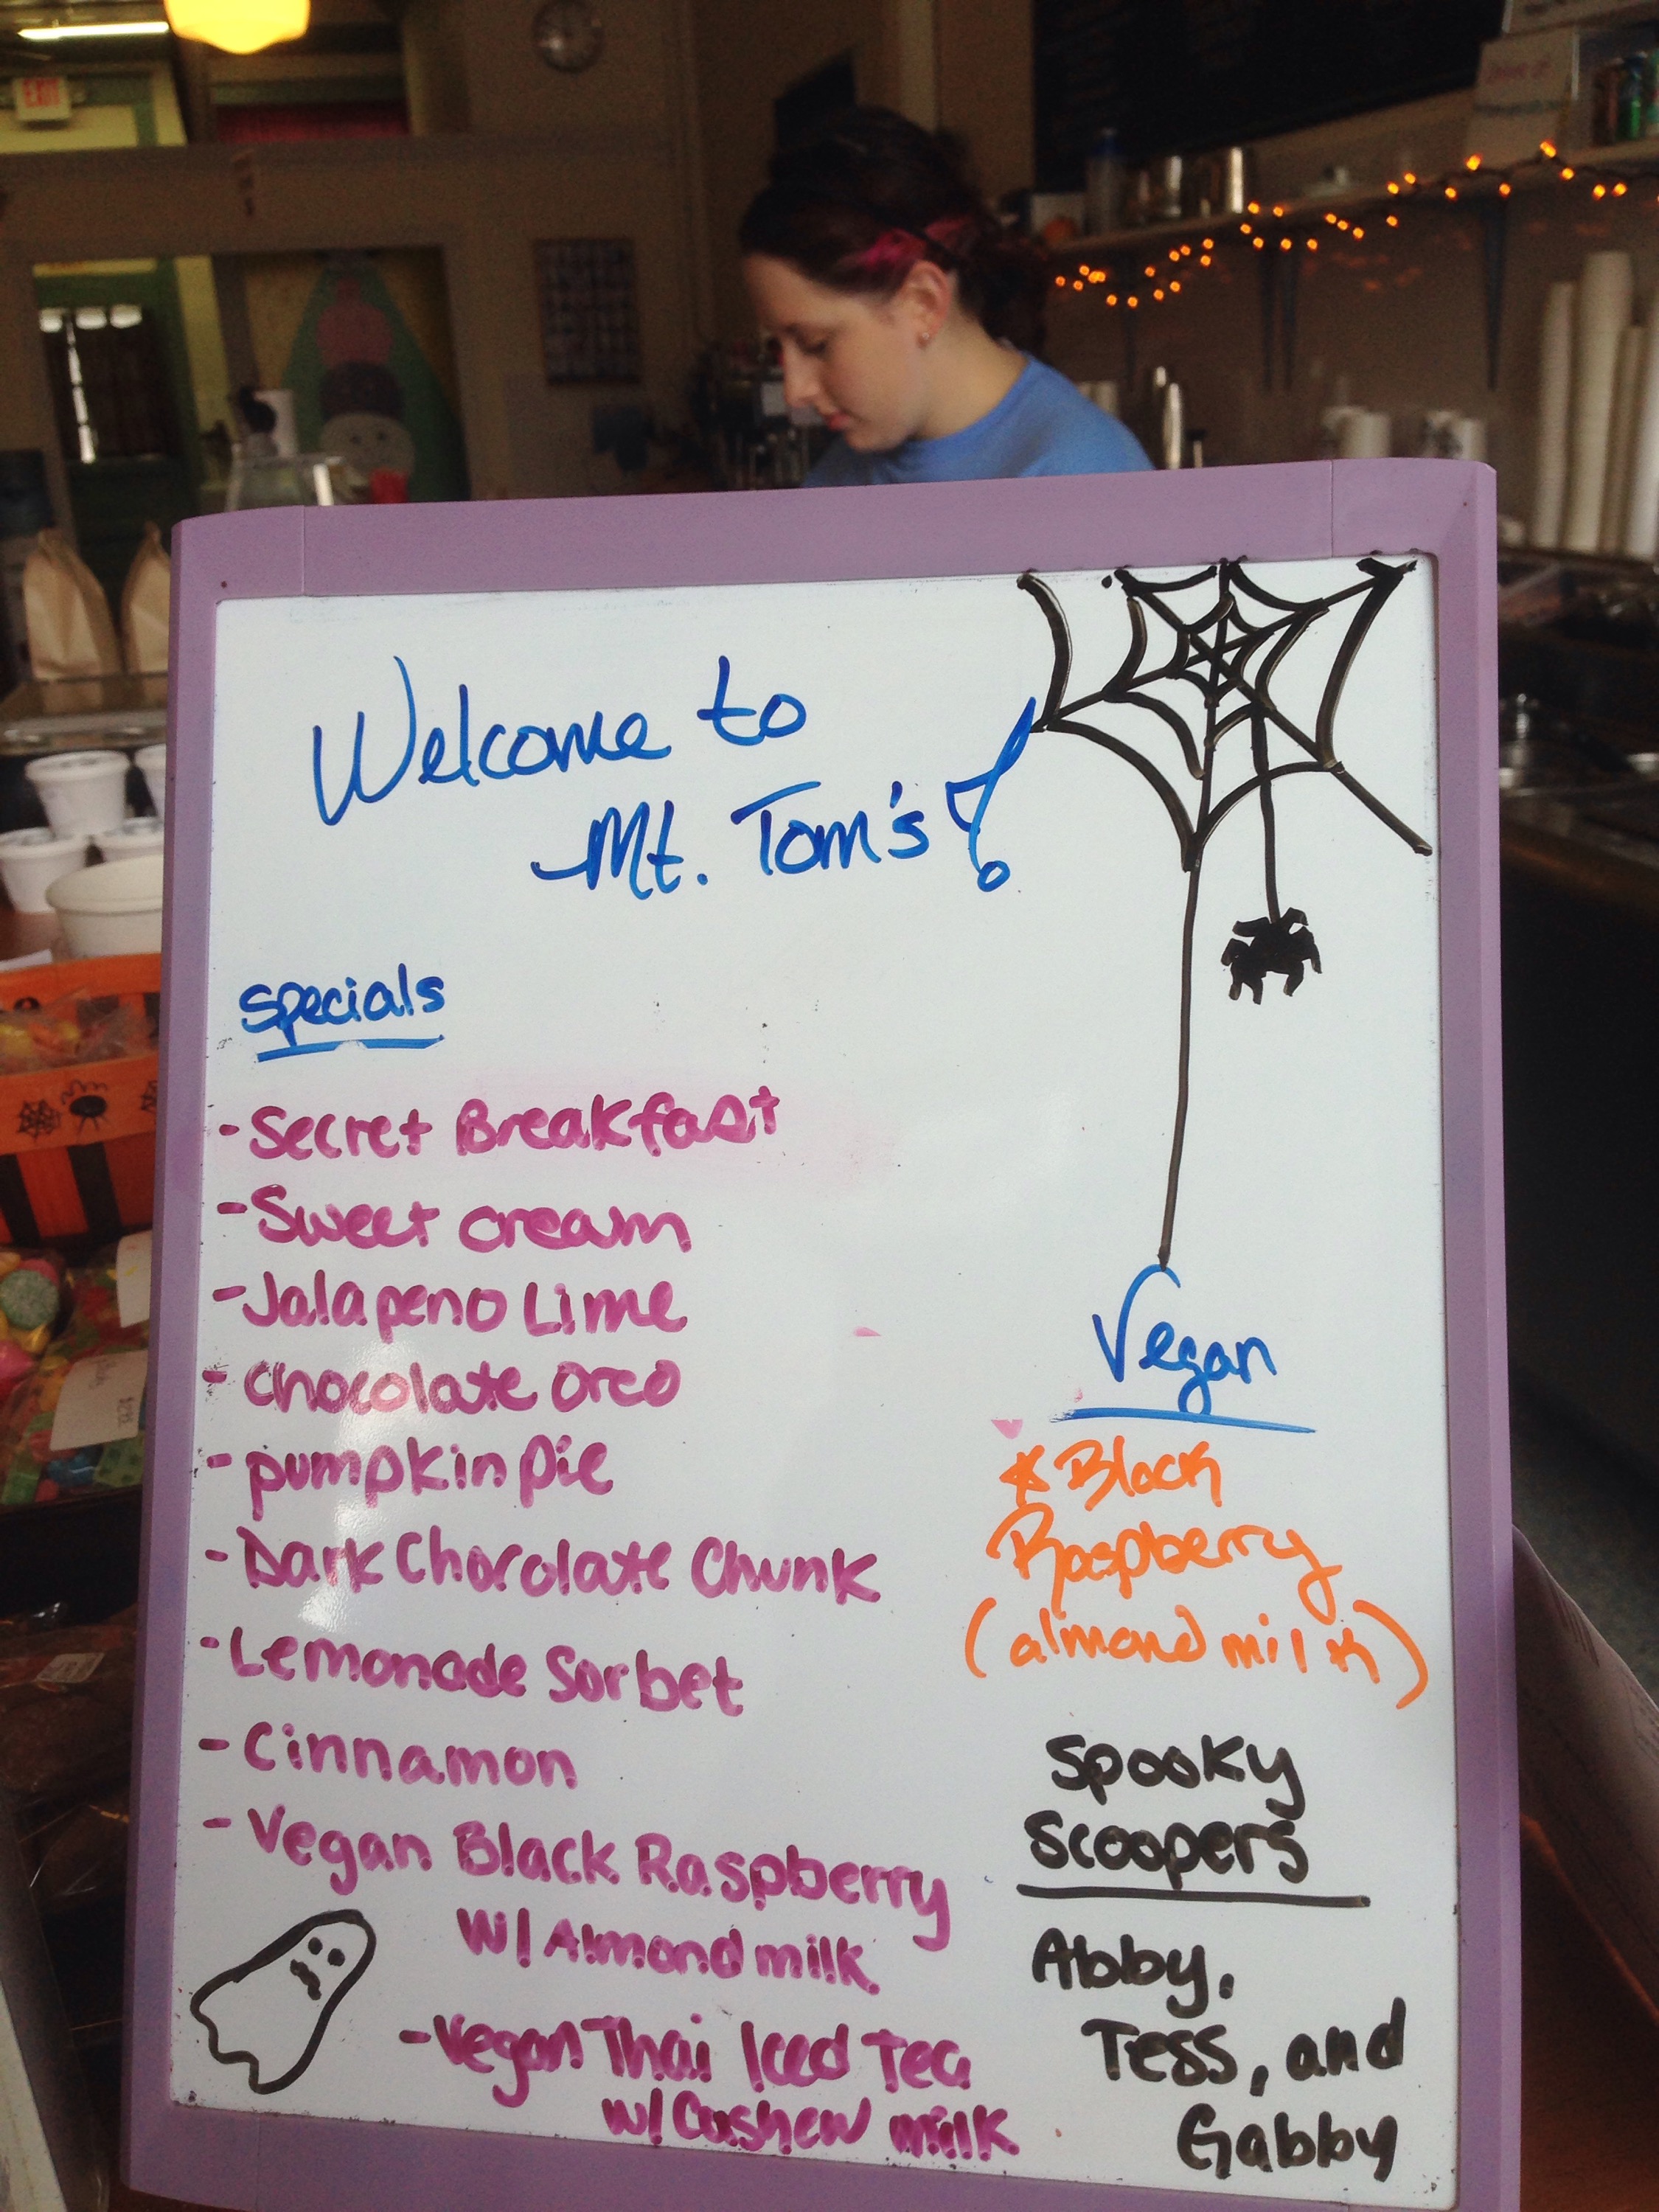 EXIT
Welcome to
Mt. Tom's!
Specials
- Secret Breakfast
- Sweet cream
- Jalapeno Lime
- Chocolate oreo
- pumpkin pie
- Dark Chocolate Chunk
- Lemonade Sorbet
- Cinnamon
- Vegan Black Raspberry
w/ Almond milk
- Vegan Thai Iced Tea
w/ Cashew milk
Vegan
* Black
Raspberry
(almond milk)
Spooky
Scoopers
Abby,
Tess, and
Gabby